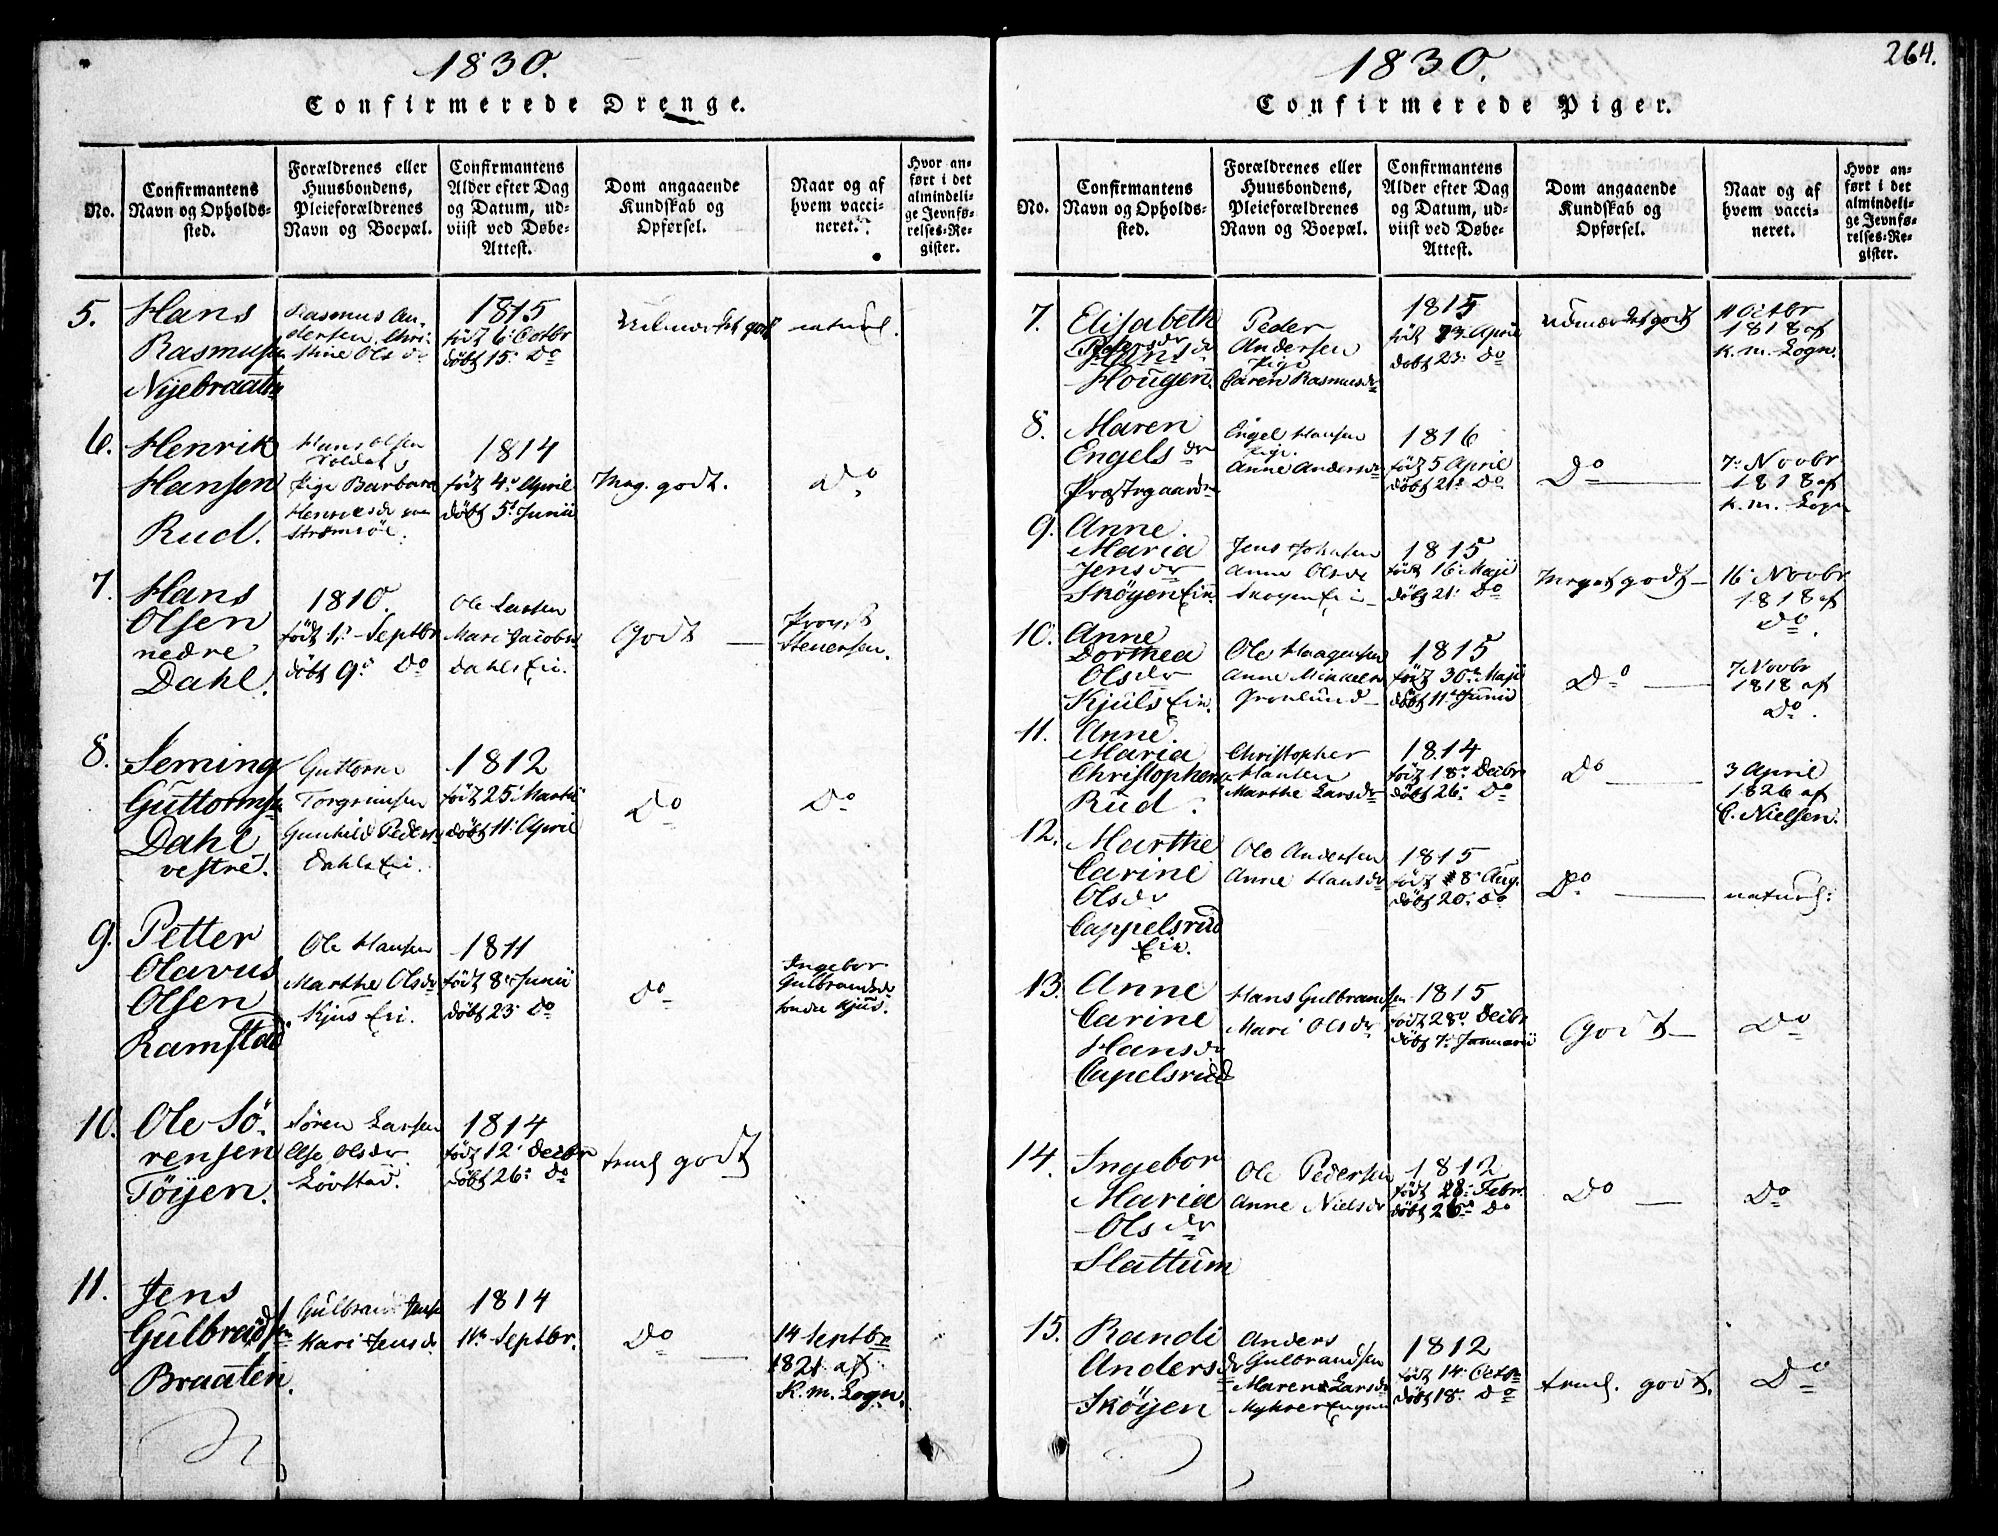 1830.
Confirmerede Drenge.
No.
Confirmantens
Navn og Opholds-
sted.
Forældrenes eller
Huusbondens,
Pleieforældrenes
Navn og Boepæl.
Confirmantens
Alder efter Dag
og Datum, ud-
viist ved Døbe-
Attest.
Dom angaaende
Kundskab og
Opførsel.
Naar og af
hvem vacci-
neret.
Hvor an-
ført i det
almindeli-
ge Jevnfø-
relses-Re-
gister.
5.
Hans
Rasmusen
Nyebraaten
Rasmus An-
dersen, Chri-
stine Ols dr
1815
født 6: Octbr
døbt 15: Do
Udmærket godt
naturl.
6.
Henrik
Hansen
Rud.
Hans Olsen
Soldat
Pige Barbara
Henriksdr
Strømsöe.
1814
født 4: April
døbt 5: Junii
Meg. godt.
Do
7.
Hans
Olsen
nedre
Dahl.
1810.
født 1: Septbr
døbt 9: Do
Ole Larsen
Mari Jacobs
Dahls Ei.
Godt
Provst
Stenersen.
8.
Seming
Guttorms
Dahl
vestre.
Guttorm
Torgrimsen
Gunhild Peders
Dahls Ei.
1812
født 25: Martii
døbt 11: April
Do
Do
9.
Petter
Olavus
Olsen
Ramstad
Ole Hansen
Marthe Olsdr
Kjus Ei.
1811
født 8: Junii
døbt 23: Do
Do
Ingebor
Gulbrandsdr
Kjus.
10.
Ole Sö-
rensen
Töyen.
Sören Larsen
Else Olsdr
Lövstad.
1814
født 12: Decbr
døbt 26: Do
temel godt
11.
Jens
Gulbrandsen
Braaten.
Gulbrand Jens
Kari Jensdr
1814
11te Septbr.
Do
14 Septbr
1821 af
K. m. Logn.
264.
1830.
Confirmerede Piger.
No.
Confirmantens
Navn og Opholds-
sted.
Forældrenes eller
Huusbondens,
Pleieforældrenes
Navn og Boepæl.
Confirmantens
Alder efter Dag
og Datum, ud-
viist ved Døbe-
Attest.
Dom angaaende
Kundskab og
Opførsel.
Naar og af
hvem vacci-
neret.
Hvor an-
ført i det
almindeli-
ge Jevnfø-
relses-Re-
gister.
7.
Elisabeth
Pedersdr
Hougen
Peder
Andersen
Pige
Caren Rasmusdr
1815
født April
døbt 23: Do
Udmærket godt
11 Octbr
1818 af
K. m. Logn.
8.
Maren
Engels dr
Præstegaarden
Engel Hansen
Pige
Anne Andersdr
1816
født 5 April
døbt 21: Do
Do
7: Novbr
1818 af
K. m. Logn
9.
Anne
Maria
Jensdr
Sköyen Ein.
Jens Johnsen
Anne Olsdr
Skoyen Ein
1815
født 16: Maji
døbt 21: Do
Meget godt
16: Novbr
1818 af
Do
10.
Anne
Dorthea
Olsdr
Kjuls Ein.
Ole Haagensen
Anne Mikkels
Gronlund
1815
født 30: Maji
døbt 11: Junii
Do
7 Novbr
1818 af
Do.
11.
Anne
Maria
Christophers
Rud.
Christopher
Hansen
Marthe Larsdr
1814
født 18: Decbr
døbt 26: Do
Do
3 April
1826 af
C. Nielsen.
12.
Marthe
Carine
Olsdr
Cappelsrud
Ein.
Ole Andersen
Anne Hansdr
1815
født 8: Aug.
døbt 20: Do
Do
naturl:
13.
Anne
Carine
Hansdr
Capelsrud
Hans Gulbrandsen
Mari Olsdr
1815
født 28: Decbr
døbt 7: Januarii
Godt
Do
14.
Ingebor
Maria
Ols dr
Slattum
Ole Pedersen
Anne Nielsdr
1812
født Febr.
døbt 26: Do
Do
Do
15.
Randi
Anders dr
Sköyen
Anders
Gulbrandsen
Maren Larsdr
1812
født 14: Octbr
døbt 18: Do
temel. godt.
Do